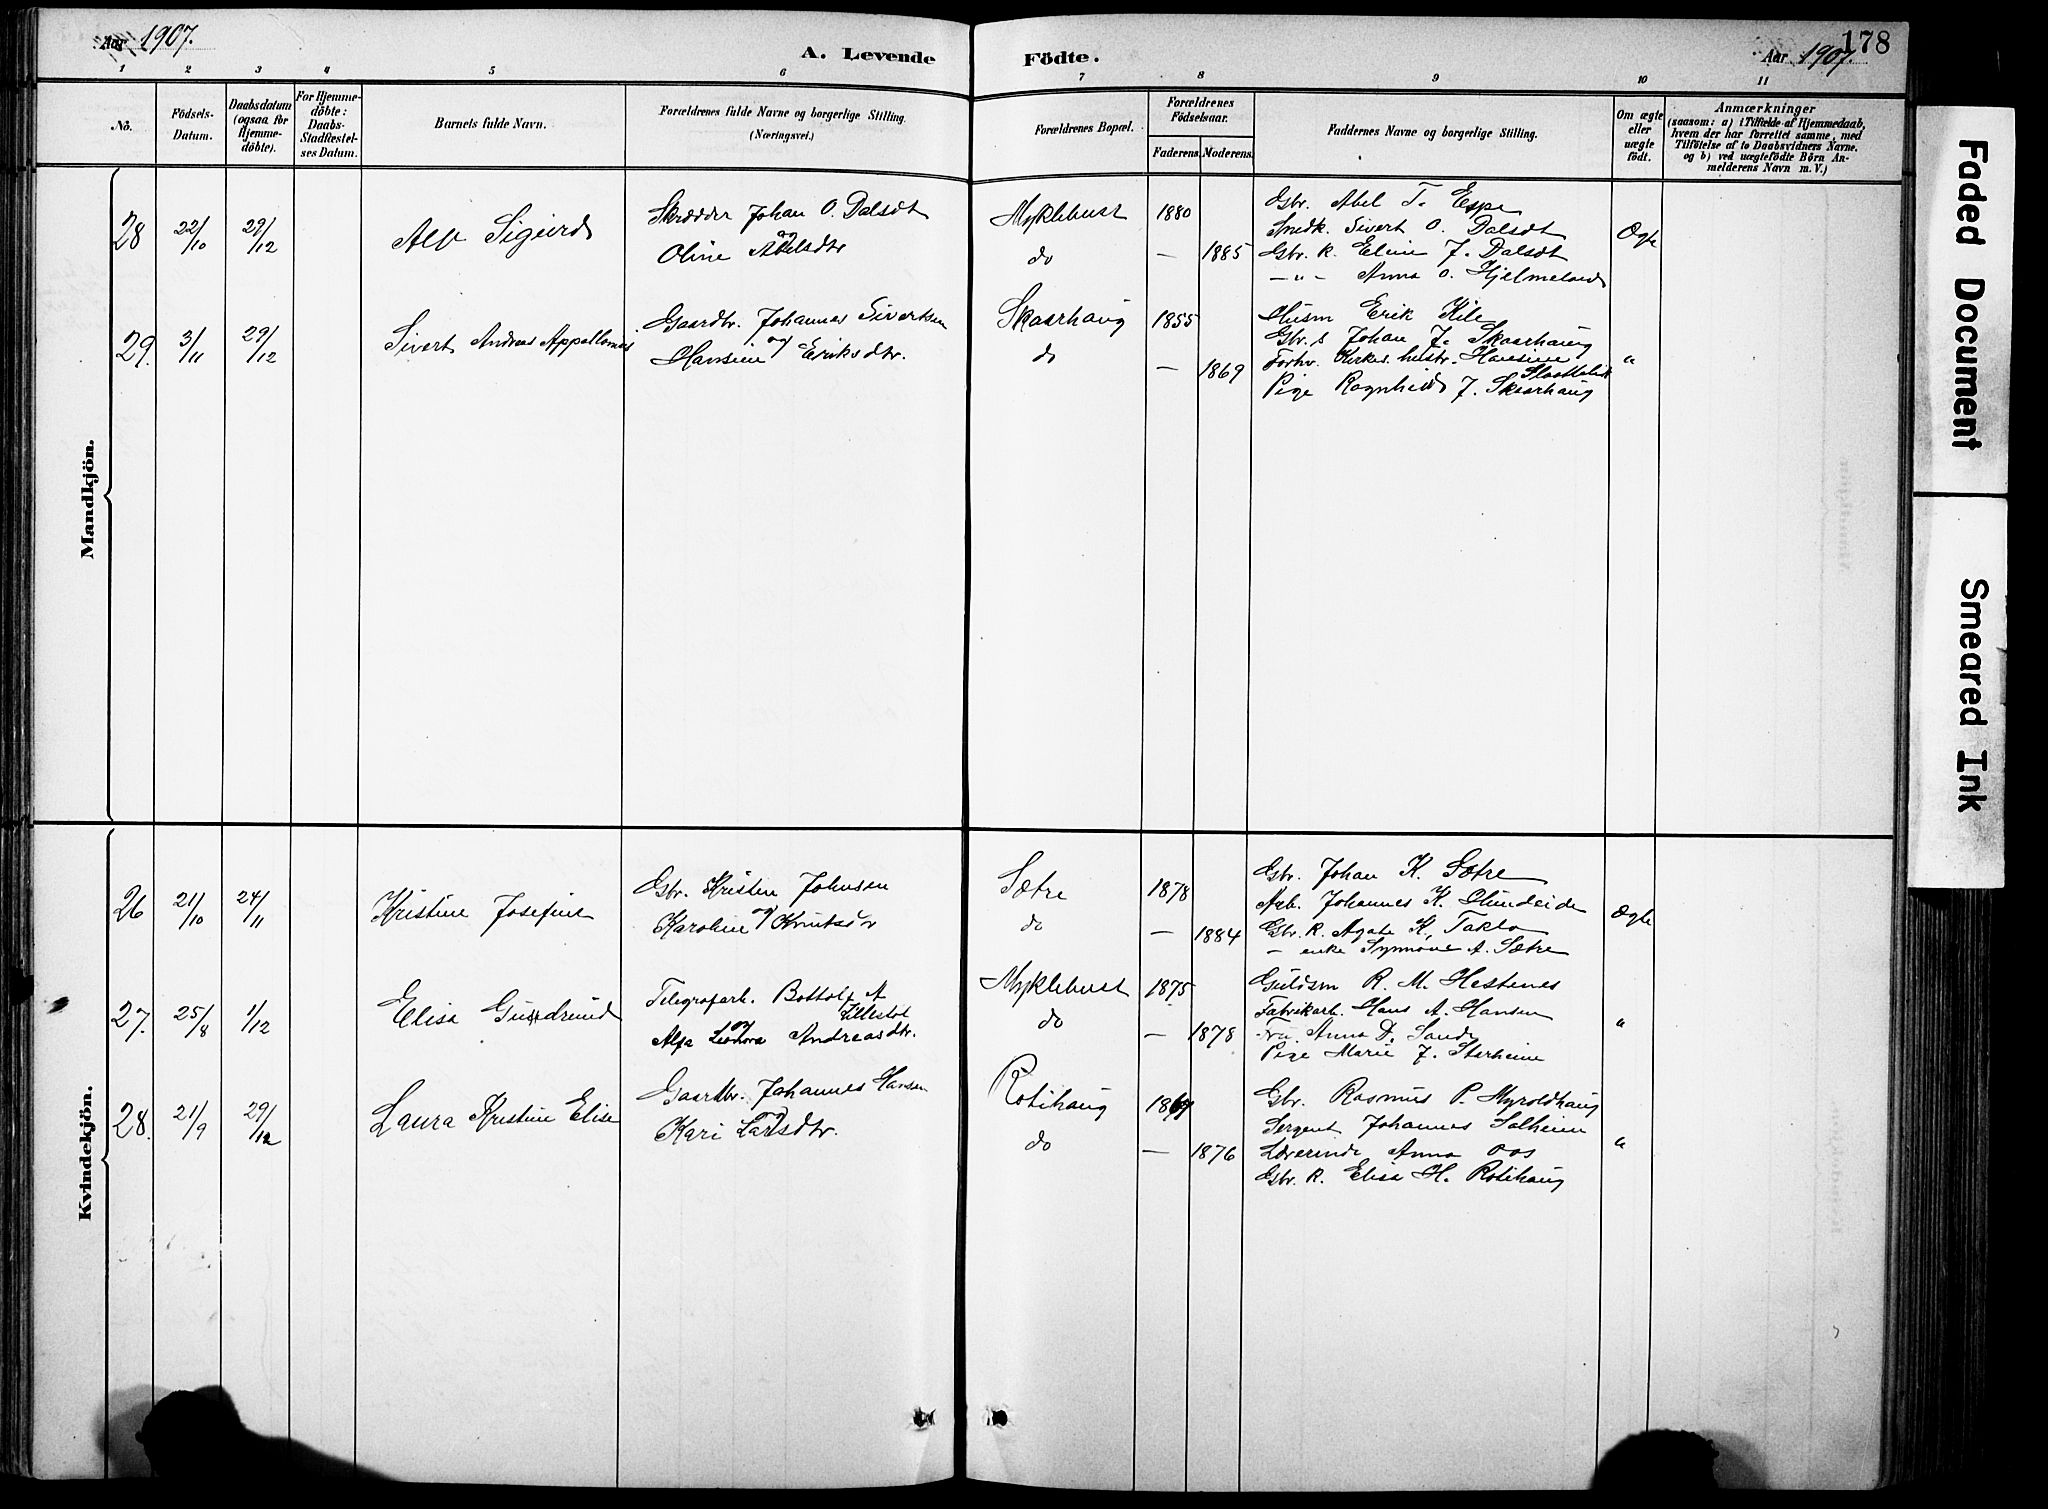 Aar 1907.
A. Levende Födte.
178
Aar 1907.
1 2 3 4 5 6 7 8 9 10 11
No.
Födsels-
Datum.
Daabsdatum
(ogsaa for
Hjemme-
döbte).
For Hjemme-
döbte:
Daabs-
Stadfæstel-
ses Datum.
Barnets fulde Navn.
Forældrenes fulde Navne og borgerlige Stilling.
(Næringsvei.)
Forældrenes Bopæl.
Forældrenes
Födselsaar.
Faderens. Moderens.
Faddernes Navne og borgerlige Stilling.
Om ægte
eller
uægte
födt.
Anmærkninger
(saasom: a) i Tilfælde af Hjemmedaab,
hvem der har forrettet samme, med
Tilföielse af to Daabsvidners Navne.
og b) ved uægtefödte Börn An-
melderens Navn m. V.)
Mandkjön.
28 22/10 29/12
Alf Sigurd
Skrædder Johan O. Dalsdt
og
Oline Abelsdtr
Myklebust
do
1880
— 1885
Gbr. Abel T. Espe
Snedk. Sivert O. Dalsdt
Gbr. k. Eline J. Dalsdt
— " — Anna O. Hjelmeland
Ægte
29. 3/11 29/12
Sivert Andreas
Gaardbr. Johannes Sivertsen
og
Hansine Eriksdtr.
Skaarhaug
do
1855
— 1869
Husm Erik Kile
Gbr. s Johan J. Skaarhaug
Forhv. Kirkes. hustr. Hansine
Pige Ragnheid J. Skaarhaug
"
Kvindekjön.
26 21/10 24/11
Kristine Josefine
Gbr. Kristen Johnsen
og
Karoline Knutsdr
Sætre
do
1878
— 1884
Gbr. Johan K. Sætre
Arb. Johannes K.
Gbr. k. Agate K. Taklo
— enke Synnøve A. Sætre
Ægte
27. 25/8 1/12
Elisa Gudrund
Telegrafarb. Bottolf A
og
Alfa Leonora Andreasdtr.
Myklebust
do
1875
— 1878
Guldsm R. M. Hestenes
Fabrikarb. Hans A. Hansen
Fru Anna D. Sande
Pige Marie J. Starheim
"
28. 21/9 29/12
Laura Kristine Elise
Gaardbr. Johannes Hansen
og
Kari Larsdtr.
Rotihaug
do
— 1876
Gbr. Rasmus P. Myroldhaug
Sergent Johannes Solheim
Lærerinde Anna Oos
Gbr. k. Elisa H. Rotihaug
"
Faded Document
Smeared Ink